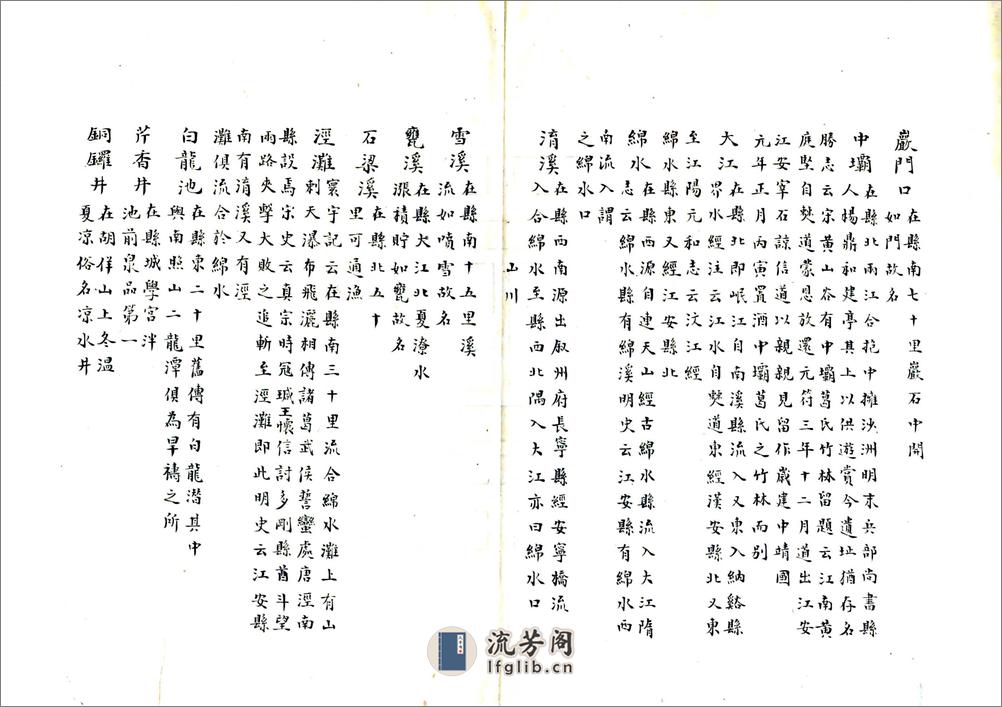 巖門口在縣南七十里巖石中開
如門故名
中壩在縣北兩江合抱中擁泱洲明末兵部尚書縣
人楊鼎和建亭其上以供遊賞今遺址猶存名
勝志云宋黃山谷有中壩葛氏竹林留題云江南黃
庭堅自僰道蒙恩放還元符三年十二月道出江安
江安宰石諒信道以親親見留作歲建中靖國
元年正月丙寅置酒中壩葛氏之竹林而別
大江在縣北即岷江自南溪縣流入又東入納谿縣
界水經注云江水自僰道東經漢安縣北又東
至江陽元和志云汶江經
綿水縣東又經江安縣北
綿水在縣西源自連天山經古綿水縣流入大江隋
志云綿水縣有綿溪明史云江安縣有綿水西
南流入謂
之綿水口
淯溪在縣西南源出敘州府長寧縣經安寧橋流
入合綿水至縣西北隅入大江亦曰綿水口
山川
雪溪在縣南十五里溪
流如噴雪故名
甕溪在縣大江北夏潦水
漲積貯如甕故名
石梁溪在縣北五十
里可通漁
涇灘寰宇記云在縣南三十里流合綿水灘上有山
剌天瀑布飛灑相傳諸葛武侯誓蠻處唐涇南
縣設焉宋史云真宗時冦瑊王懷信討多剛縣酋斗望
兩路夾擊大敗之追斬至涇灘即此明史云江安縣
南有淯溪又有涇
灘俱流合於綿水
白龍池在縣東二十里舊傳有白龍潛其中
與南照山二龍潭俱為旱禱之所
芹香井在縣城學宮泮
池前泉品第一
銅鑼井在胡佯山上冬溫
夏凉俗名凉水井
流芳阁
lfglib.cn